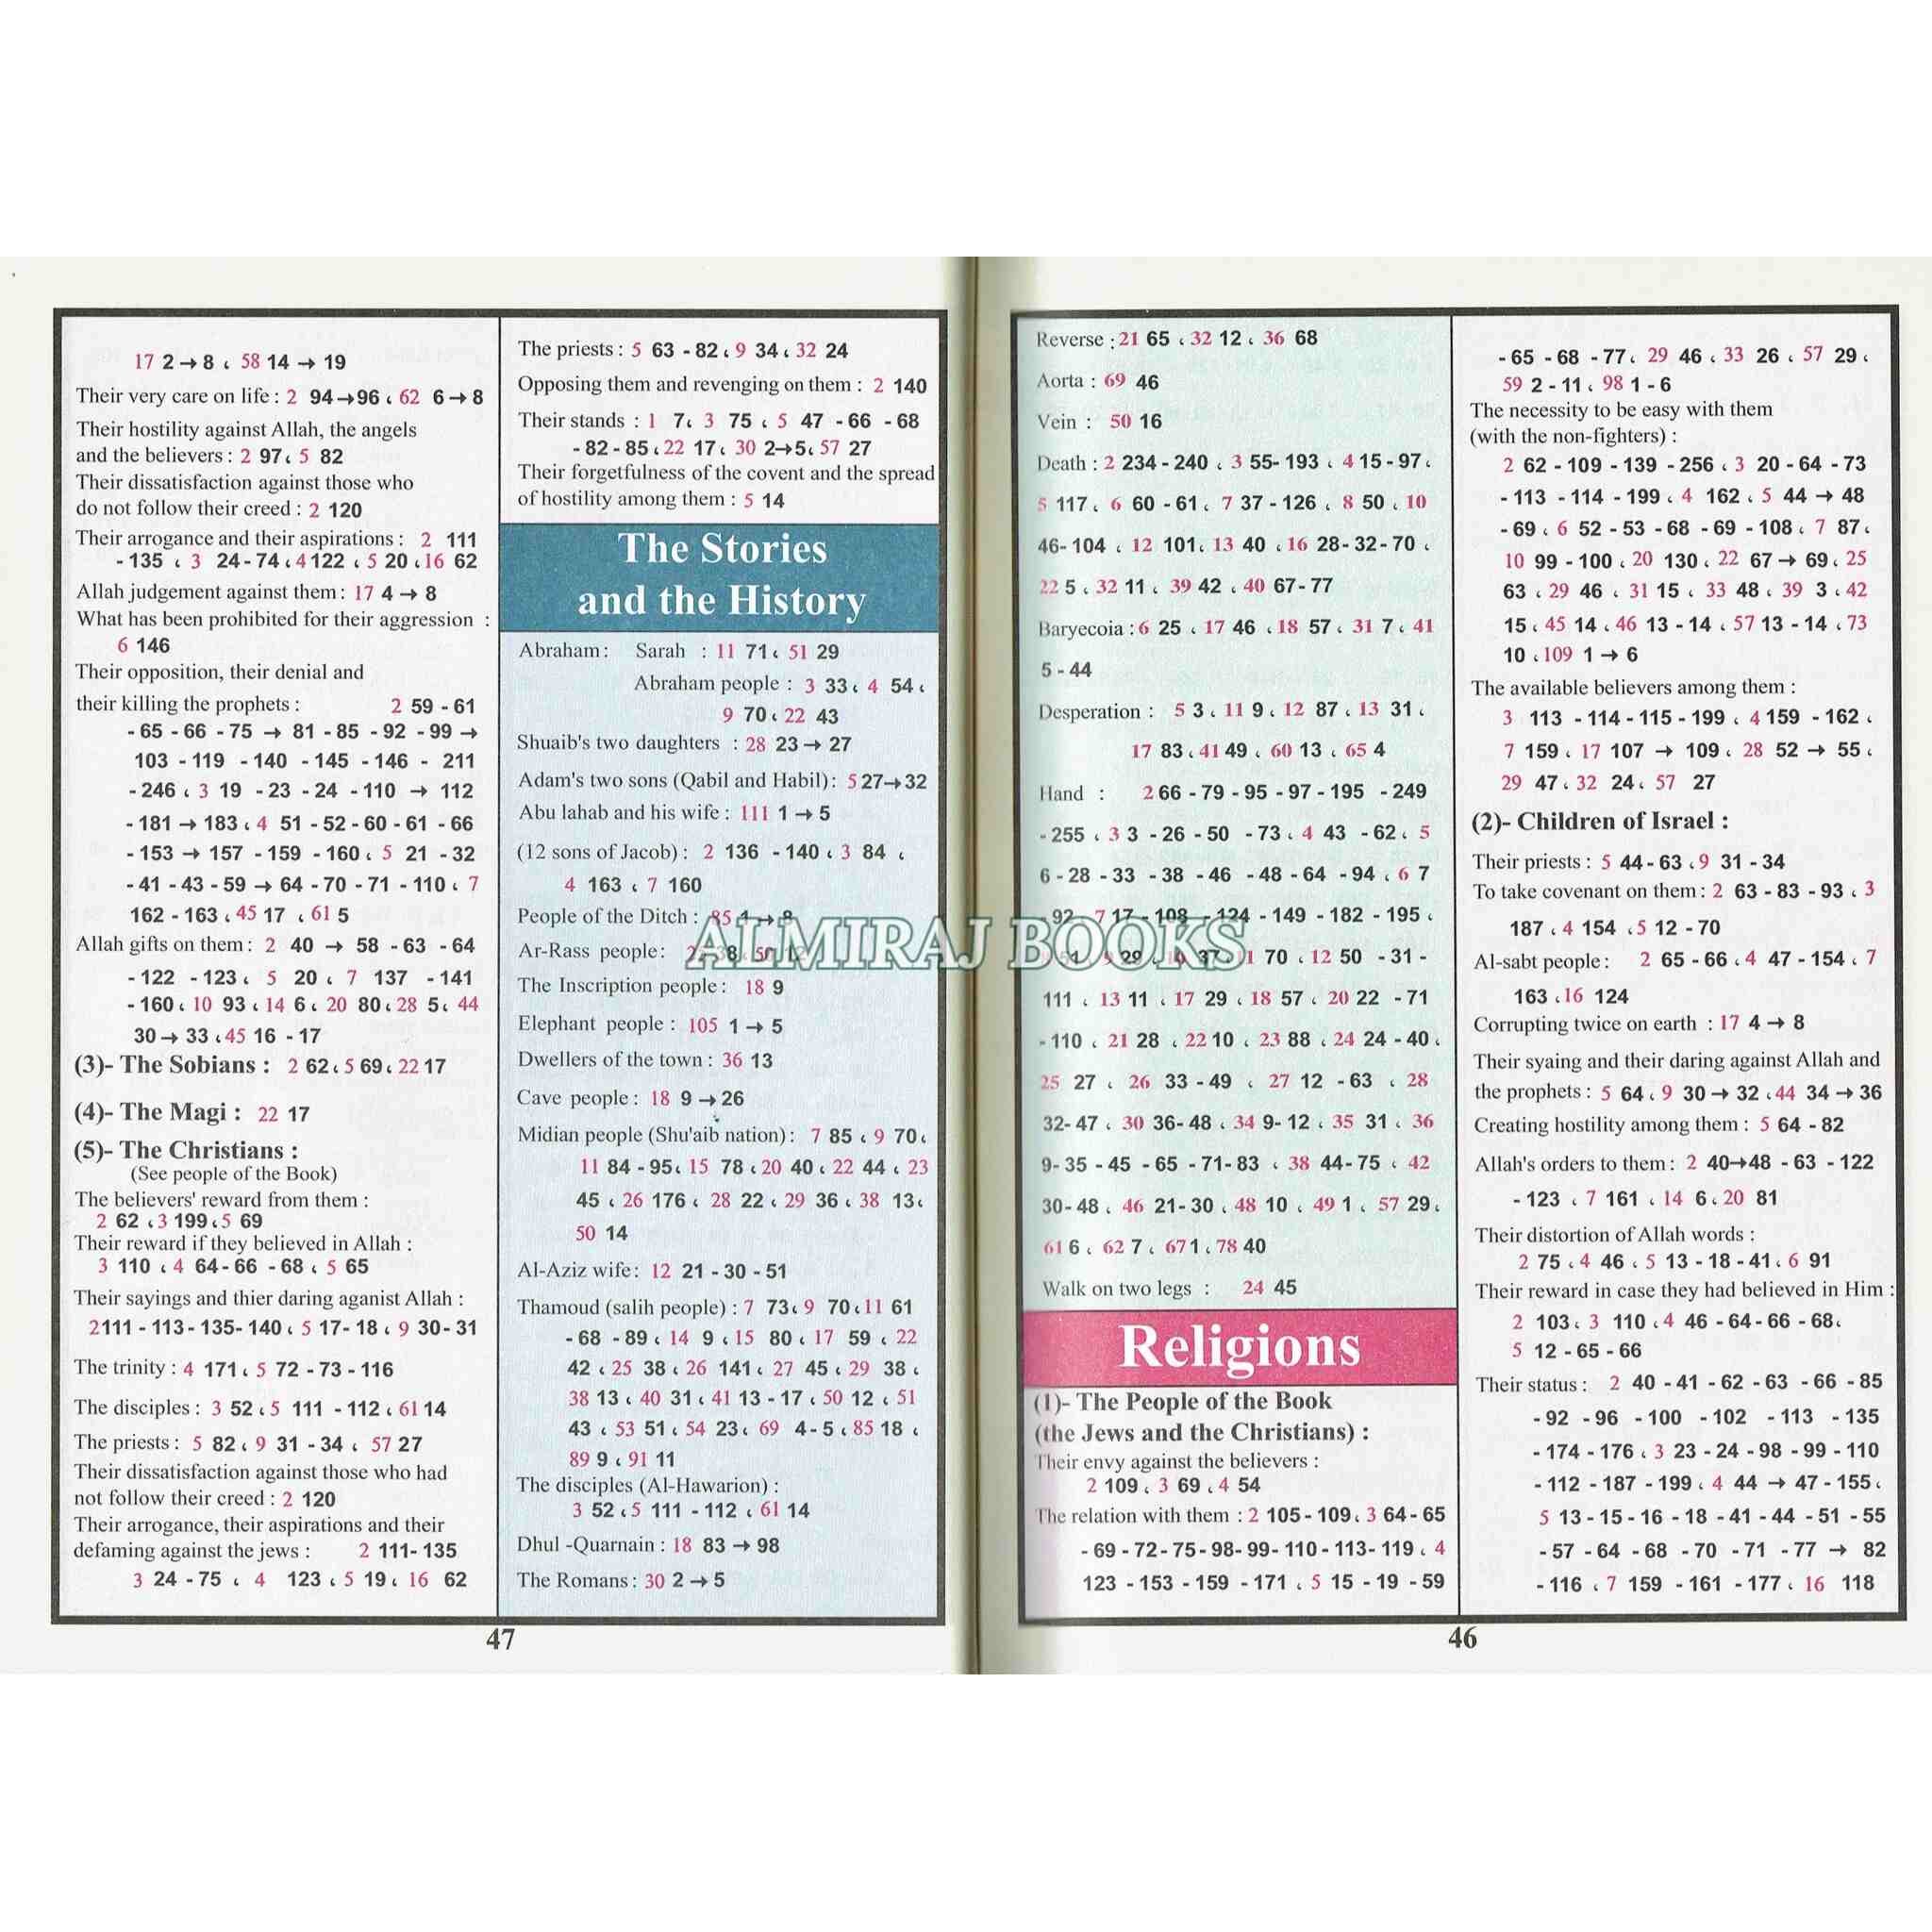 Reverse : 21 65 ، 32 12 ، 36 68
Aorta : 69 46
Vein : 50 16
Death : 2 234 - 240 ، 3 55- 193 ، 4 15 - 97 ،
5 117 ، 6 60 - 61 ، 7 37 - 126 ، 8 50 ، 10
46- 104 ، 12 101 ، 13 40 ، 16 28- 32- 70 ،
22 5 ، 32 11 ، 39 42 ، 40 67- 77
Baryecoia : 6 25 ، 17 46 ، 18 57 ، 31 7 ، 41
5 - 44
Desperation : 5 3 ، 11 9 ، 12 87 ، 13 31 ،
17 83 ، 41 49 ، 60 13 ، 65 4
Hand : 2 66 - 79 - 95 - 97 - 195 - 249
- 255 ، 3 3 - 26 - 50 - 73 ، 4 43 - 62 ، 5
6 - 28 - 33 - 38 - 46 - 48 - 64 - 94 ، 6 7
92 7 17 - 108 - 124 - 149 - 182 - 195 ،
51 29 37 11 70 ، 12 50 - 31 -
111 ، 13 11 ، 17 29 ، 18 57 ، 20 22 - 71
- 110 ، 21 28 ، 22 10 ، 23 88 ، 24 24 - 40 ،
25 27 ، 26 33 - 49 ، 27 12 - 63 ، 28
32- 47 ، 30 36- 48 ، 34 9- 12 ، 35 31 ، 36
9- 35 - 45 - 65 - 71- 83 ، 38 44- 75 ، 42
30- 48 ، 46 21- 30 ، 48 10 ، 49 1 ، 57 29 ،
61 6 ، 62 7 ، 67 1 ، 78 40
Walk on two legs : 24 45
Religions
(1)- The People of the Book
(the Jews and the Christians) :
Their envy against the believers :
2 109 ، 3 69 ، 4 54
The relation with them : 2 105 - 109 ، 3 64 - 65
- 69 - 72 - 75 - 98- 99- 110 - 113- 119 ، 4
123 - 153 - 159 - 171 ، 5 15 - 19 - 59
- 65 - 68 - 77 ، 29 46 ، 33 26 ، 57 29 ،
59 2 - 11 ، 98 1 - 6
The necessity to be easy with them
(with the non-fighters) :
2 62 - 109 - 139 - 256 ، 3 20 - 64 - 73
- 113 - 114 - 199 ، 4 162 ، 5 44 → 48
- 69 ، 6 52 - 53 - 68 - 69 - 108 ، 7 87 ،
10 99 - 100 ، 20 130 ، 22 67 → 69 ، 25
63 ، 29 46 ، 31 15 ، 33 48 ، 39 3 ، 42
15 ، 45 14 ، 46 13 - 14 ، 57 13 - 14 ، 73
10 ، 109 1 → 6
The available believers among them :
3 113 - 114 - 115 - 199 ، 4 159 - 162 ،
7 159 ، 17 107 → 109 ، 28 52 → 55 ،
29 47 ، 32 24 ، 57 27
(2)- Children of Israel :
Their priests : 5 44 - 63 ، 9 31 - 34
To take covenant on them : 2 63 - 83 - 93 ، 3
187 ، 4 154 ، 5 12 - 70
Al-sabt people : 2 65 - 66 ، 4 47 - 154 ، 7
163 ، 16 124
Corrupting twice on earth : 17 4 → 8
Their syaing and their daring against Allah and
the prophets : 5 64 ، 9 30 → 32 ، 44 34 → 36
Creating hostility among them : 5 64 - 82
Allah's orders to them : 2 40→48 - 63 - 122
- 123 ، 7 161 ، 14 6 ، 20 81
Their distortion of Allah words :
2 75 ، 4 46 ، 5 13 - 18 - 41 ، 6 91
Their reward in case they had believed in Him :
2 103 ، 3 110 ، 4 46 - 64 - 66 - 68 ،
5 12 - 65 - 66
Their status : 2 40 - 41 - 62 - 63 - 66 - 85
- 92 - 96 - 100 - 102 - 113 - 135
- 174 - 176 ، 3 23 - 24 - 98 - 99 - 110
- 112 - 187 - 199 ، 4 44 → 47 - 155 ،
5 13 - 15 - 16 - 18 - 41 - 44 - 51 - 55
- 57 - 64 - 68 - 70 - 71 - 77 → 82
- 116 ، 7 159 - 161 - 177 ، 16 118
46
17 2 → 8 ، 58 14 → 19
Their very care on life : 2 94→96 ، 62 6 → 8
Their hostility against Allah, the angels
and the believers : 2 97 ، 5 82
Their dissatisfaction against those who
do not follow their creed : 2 120
Their arrogance and their aspirations : 2 111
- 135 ، 3 24 - 74 ، 4 122 ، 5 20 ، 16 62
Allah judgement against them : 17 4 → 8
What has been prohibited for their aggression :
6 146
Their opposition, their denial and
their killing the prophets : 2 59 - 61
- 65 - 66 - 75 → 81 - 85 - 92 - 99 →
103 - 119 - 140 - 145 - 146 - 211
- 246 ، 3 19 - 23 - 24 - 110 → 112
- 181 → 183 ، 4 51 - 52 - 60 - 61 - 66
- 153 → 157 - 159 - 160 ، 5 21 - 32
- 41 - 43 - 59 → 64 - 70 - 71 - 110 ، 7
162 - 163 ، 45 17 ، 61 5
Allah gifts on them : 2 40 → 58 - 63 - 64
- 122 - 123 ، 5 20 ، 7 137 - 141
- 160 ، 10 93 ، 14 6 ، 20 80 ، 28 5 ، 44
30 → 33 ، 45 16 - 17
(3)- The Sobians : 2 62 ، 5 69 ، 22 17
(4)- The Magi : 22 17
(5)- The Christians :
(See people of the Book)
The believers' reward from them :
2 62 ، 3 199 ، 5 69
Their reward if they believed in Allah :
3 110 ، 4 64- 66 - 68 ، 5 65
Their sayings and thier daring aganist Allah :
2 111 - 113 - 135- 140 ، 5 17- 18 ، 9 30- 31
The trinity : 4 171 ، 5 72 - 73 - 116
The disciples : 3 52 ، 5 111 - 112 ، 61 14
The priests : 5 82 ، 9 31 - 34 ، 57 27
Their dissatisfaction against those who had
not follow their creed : 2 120
Their arrogance, their aspirations and their
defaming against the jews : 2 111- 135
3 24 - 75 ، 4 123 ، 5 19 ، 16 62
The priests : 5 63 - 82 ، 9 34 ، 32 24
Opposing them and revenging on them : 2 140
Their stands : 1 7 ، 3 75 ، 5 47 - 66 - 68
- 82 - 85 ، 22 17 ، 30 2→5 ، 57 27
Their forgetfulness of the covent and the spread
of hostility among them : 5 14
The Stories
and the History
Abraham : Sarah : 11 71 ، 51 29
Abraham people : 3 33 ، 4 54 ،
9 70 ، 22 43
Shuaib's two daughters : 28 23 → 27
Adam's two sons (Qabil and Habil) : 5 27→32
Abu lahab and his wife : 111 1 → 5
(12 sons of Jacob) : 2 136 - 140 ، 3 84 ،
4 163 ، 7 160
People of the Ditch : 85 1 → 8
Ar-Rass people : 38 50 12
The Inscription people : 18 9
Elephant people : 105 1 → 5
Dwellers of the town : 36 13
Cave people : 18 9 → 26
Midian people (Shu'aib nation) : 7 85 ، 9 70 ،
11 84 - 95 ، 15 78 ، 20 40 ، 22 44 ، 23
45 ، 26 176 ، 28 22 ، 29 36 ، 38 13 ،
50 14
Al-Aziz wife : 12 21 - 30 - 51
Thamoud (salih people) : 7 73 ، 9 70 ، 11 61
- 68 - 89 ، 14 9 ، 15 80 ، 17 59 ، 22
42 ، 25 38 ، 26 141 ، 27 45 ، 29 38 ،
38 13 ، 40 31 ، 41 13 - 17 ، 50 12 ، 51
43 ، 53 51 ، 54 23 ، 69 4- 5 ، 85 18 ،
89 9 ، 91 11
The disciples (Al-Hawarion) :
3 52 ، 5 111 - 112 ، 61 14
Dhul -Quarnain : 18 83 → 98
The Romans : 30 2 → 5
47
ALMIRAJ BOOKS